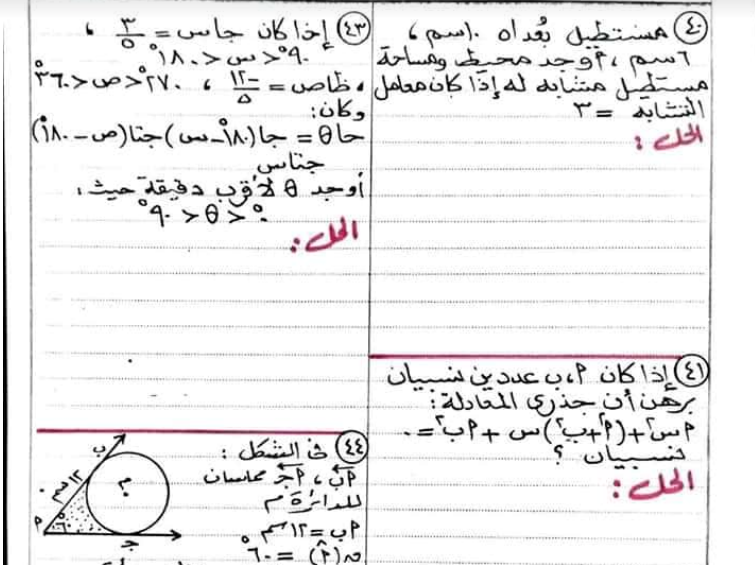 ٤٠ مستطيل بُعداه ١٠سم ،
٦سم ، أوجد محيط ومساحة
مستطيل مشابه له إذا كان معامل
التشابه = ٣
الحل :
٤١ إذا كان أ، ب عددين نسبيان
برهن أن جذرى المعادلة :
أس² + (أ² + ب²) س + أب² = ٠
نسبيان ؟
الحل :
٤٣ إذا كان جاس = ٣/٥ ،
٩٠° < س < ١٨٠°
، ظاص = -١٢/٥ ، ٢٧٠° < ص < ٣٦٠°
وكان :
جاθ = جا(١٨٠° - س) جتا(ص - ١٨٠°)
جتاس
أوجد θ لأقرب دقيقة حيث :
٠° < θ < ٩٠°
الحل :
٤٤ فى الشكل :
أب ، أجـ مماسان
للدائرة م
أب = ١٢سم
ق(أ) = ٦٠°
ب
١٢سم
م
أ
٦٠°
جـ